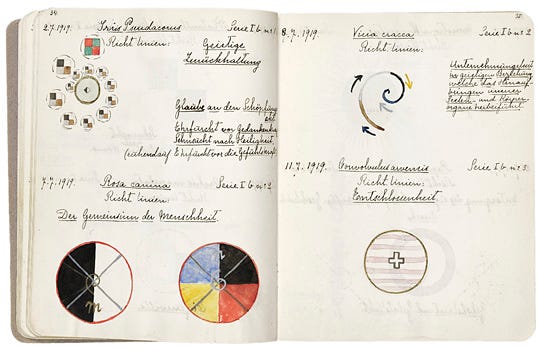 34.
2.7.1919. Iris Pseudacorus Serie I b. nr 1.
Richtlinien:
Geistige
Zurückhaltung
Glaube an den Schöpfung
Ehrfurcht vor Gedanken
Sehnsucht nach Heiligkeit,
Ehrfurcht vor die
7.7.1919. Rosa canina Serie I b. nr 2
Richtlinien:
Der Gemeinsinn der Menschheit.
35.
8.7.1919. Vicia cracca Serie I b nr 2
Richtlinien:
Unternehmungslust
in geistigen Beziehung
welche das
inneren
Seelen- und Körper-
organe herbeiführt.
11.7.1919. Convolvulus arvensis Serie I b nr 3.
Richtlinien:
Entschlossenheit.